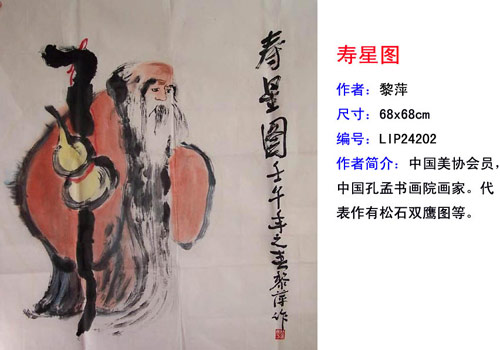 寿星图
壬午年之春黎萍作
寿星图
作者：黎萍
尺寸：68x68cm
编号：LIP24202
作者简介：中国美协会员，
中国孔孟书画院画家。代
表作有松石双鹰图等。